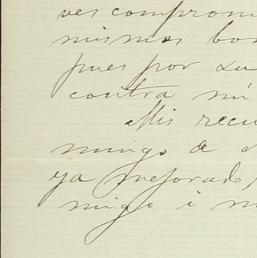 ves comprom
mismos bon
pues por su
contra mí
Mis recu
mingo a d
ya mejorado,
migo i m